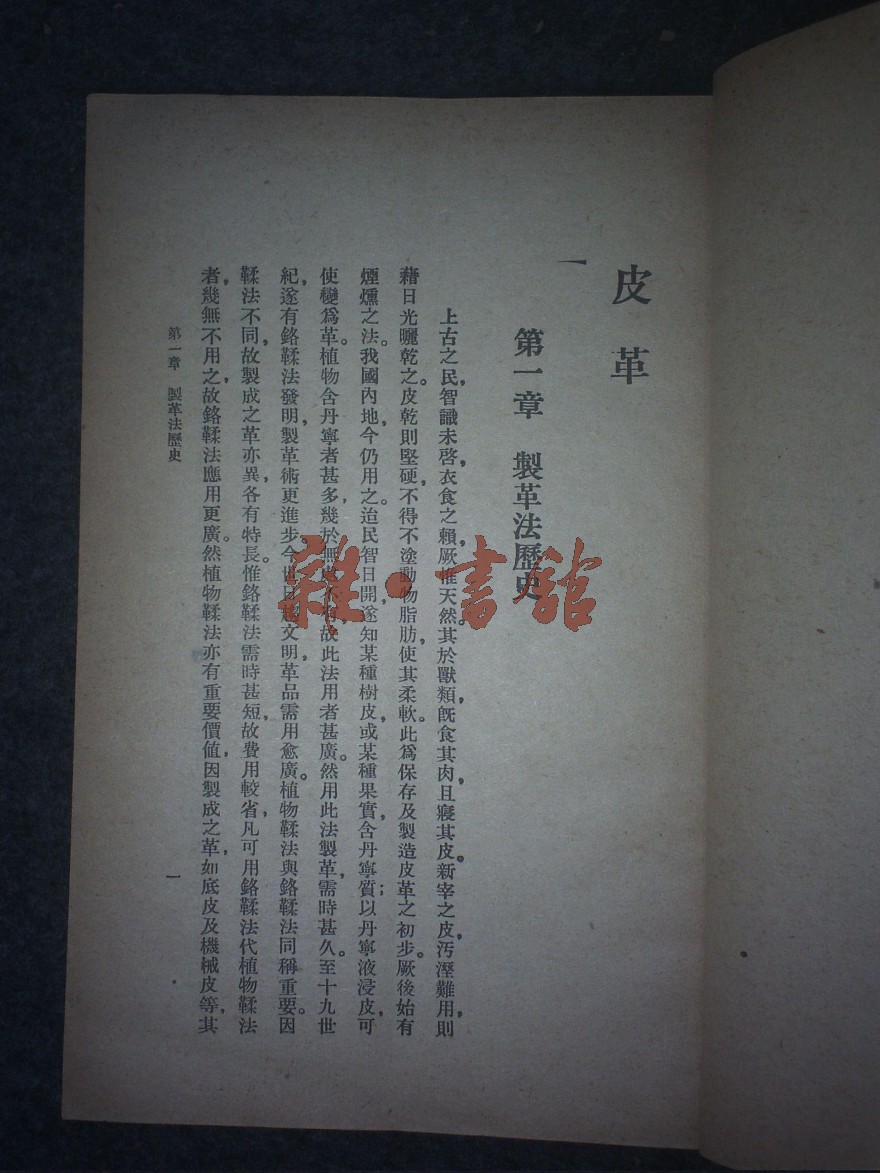 皮革
第一章　製革法歷史
上古之民，智識未啓，衣食之賴，厥惟天然。其於獸類，既食其肉，且寢其皮。新宰之皮，污溼難用，則
藉日光曬乾之。皮乾則堅硬，不得不塗動物脂肪，使其柔軟。此爲保存及製造皮革之初步。厥後始有
煙燻之法。我國內地，今仍用之。迨民智日開，遂知某種樹皮，或某種果實，含丹寧質；以丹寧液浸皮，可
使變爲革。植物含丹寧者甚多，幾於無處不有，故此法用者甚廣。然用此法製革，需時甚久。至十九世
紀，遂有鉻鞣法發明，製革術更進步。今世日趨文明，革品需用愈廣。植物鞣法與鉻鞣法同稱重要。因
鞣法不同，故製成之革亦異，各有特長。惟鉻鞣法需時甚短，故費用較省，凡可用鉻鞣法代植物鞣法
者，幾無不用之，故鉻鞣法應用更廣。然植物鞣法亦有重要價值，因製成之革，如底皮及機械皮等，其
第一章　製革法歷史
一
雜·書館